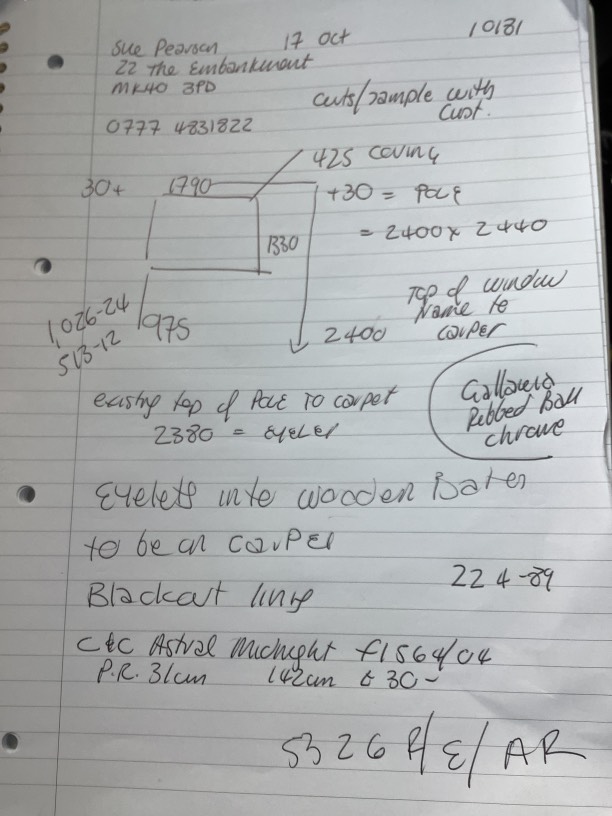 Sue Pearson 17 Oct 10181
22 The Embankment
MK40 3PD
cuts/sample with
Cust.
0777 4831822
425 coving
30+ 1790 +30 = Pole
= 2400 x 2440
1330
Top of window
frame to
carpet
1,026-24
513-12
975
2400
existing top of Pole to carpet
2380 = eyelet
Ribbed Ball
chrome
Eyelets into wooden
to be on carpet
22 4-89
Blackout lining
C&C Astral Midnight f1564/04
P.R. 31cm 142cm 30-
5326 P/E/AR